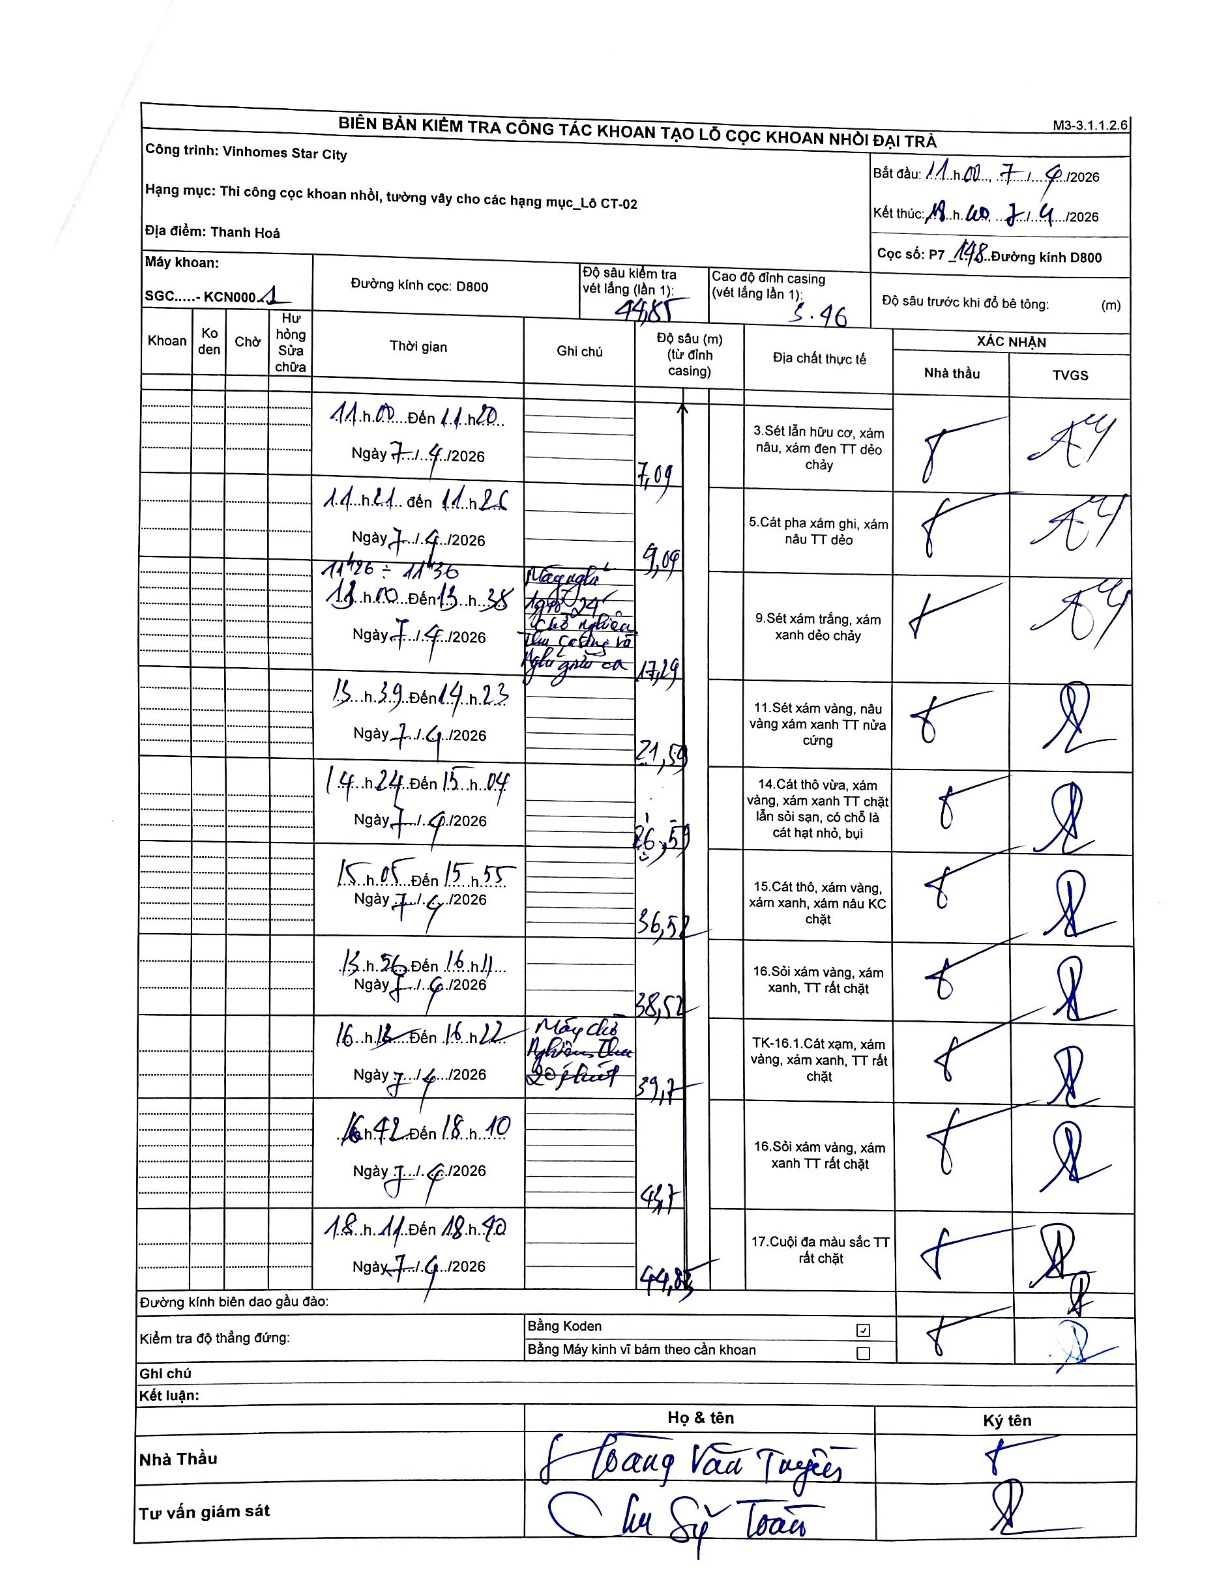 M3-3.1.1.2.6
BIÊN BẢN KIỂM TRA CÔNG TÁC KHOAN TẠO LỖ CỌC KHOAN NHỒI ĐẠI TRÀ
Công trình: Vinhomes Star City
Bắt đầu: 11.h.00.., 7./.4./2026
Hạng mục: Thi công cọc khoan nhồi, tường vây cho các hạng mục_Lô CT-02
Kết thúc: 18.h.40, 7./.4./2026
Địa điểm: Thanh Hoá
Cọc số: P7_148..Đường kính D800
Máy khoan:
SGC.....- KCN000.1
Đường kính cọc: D800
Độ sâu kiểm tra vét lắng (lần 1):
44,85
Cao độ đỉnh casing (vét lắng lần 1):
5.46
Độ sâu trước khi đổ bê tông: (m)
Khoan
Ko den
Chờ
Hư hỏng Sửa chữa
Thời gian
Ghi chú
Độ sâu (m) (từ đỉnh casing)
Địa chất thực tế
XÁC NHẬN
Nhà thầu
TVGS
11.h.00...Đến 11.h20..
Ngày 7../..4../2026
7,09
3.Sét lẫn hữu cơ, xám nâu, xám đen TT dẻo chảy
11...h.21... đến 11.h 25
Ngày 7../..4../2026
9,09
5.Cát pha xám ghi, xám nâu TT dẻo
11h26 ÷ 11h36
13.h.00...Đến 13..h..38
Ngày 7../..4../2026
Máy nghỉ
1giờ 24'
chờ nghiệm
thu casing và
nghỉ giữa ca
17,29
9.Sét xám trắng, xám xanh dẻo chảy
13...h.39.Đến 14.h.23
Ngày 7../.4../2026
21,59
11.Sét xám vàng, nâu vàng xám xanh TT nửa cứng
14.h 24..Đến 15.h.04
Ngày 7../..4../2026
26,59
14.Cát thô vừa, xám vàng, xám xanh TT chặt lẫn sỏi sạn, có chỗ là cát hạt nhỏ, bụi
15.h.05...Đến 15.h.55
Ngày 7../.4../2026
36,52
15.Cát thô, xám vàng, xám xanh, xám nâu KC chặt
15.h.56..Đến 16.h.11...
Ngày 7../.4../2026
38,52
16.Sỏi xám vàng, xám xanh, TT rất chặt
16..h.12...Đến .16.h.22
Ngày 7../.4../2026
Máy chờ
nghiệm thu
20 phút
39,7
TK-16.1.Cát xạm, xám vàng, xám xanh, TT rất chặt
16.h.42..Đến 18..h...10
Ngày 7../..4../2026
16.Sỏi xám vàng, xám xanh TT rất chặt
18..h..11.Đến 18.h.40
Ngày 7../..4../2026
17.Cuội đa màu sắc TT rất chặt
Đường kính biên dao gầu đào:
Kiểm tra độ thẳng đứng:
Bằng Koden ☑
Bằng Máy kinh vĩ bám theo cần khoan ☐
Ghi chú
Kết luận:
Họ & tên
Ký tên
Nhà Thầu
Hoàng Văn Tuyến
Tư vấn giám sát
Chu Sỹ Toàn